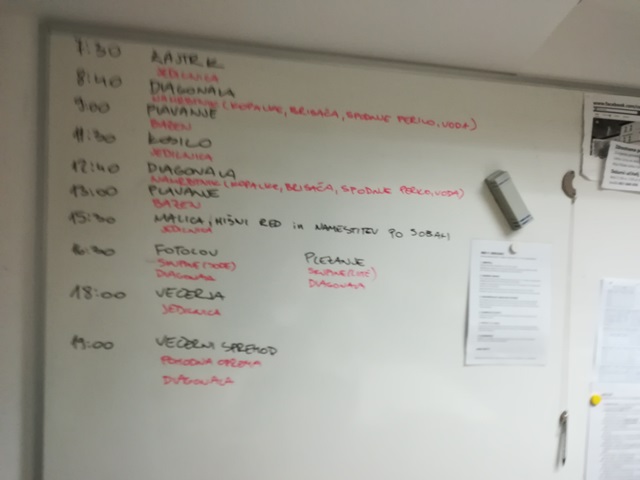 7:30 ZAJTRK
JEDILNICA
8:40 DIAGONALA
NAHRBTNIK (KOPALKE, BRISAČA, SPODNJE PERILO, VODA)
9:00 PLAVANJE
BAZEN
11:30 KOSILO
JEDILNICA
12:40 DIAGONALA
NAHRBTNIK (KOPALKE, BRISAČA, SPODNJE PERILO, VODA)
13:00 PLAVANJE
BAZEN
15:30 MALICA, HIŠNI RED in NAMESTITEV PO SOBAH
JEDILNICA
16:30 FOTOLOV PLEZANJE
DIAGONALA DIAGONALA
18:00 VEČERJA
JEDILNICA
19:00 VEČERNI SPREHOD
POHODNA OPREMA
DIAGONALA